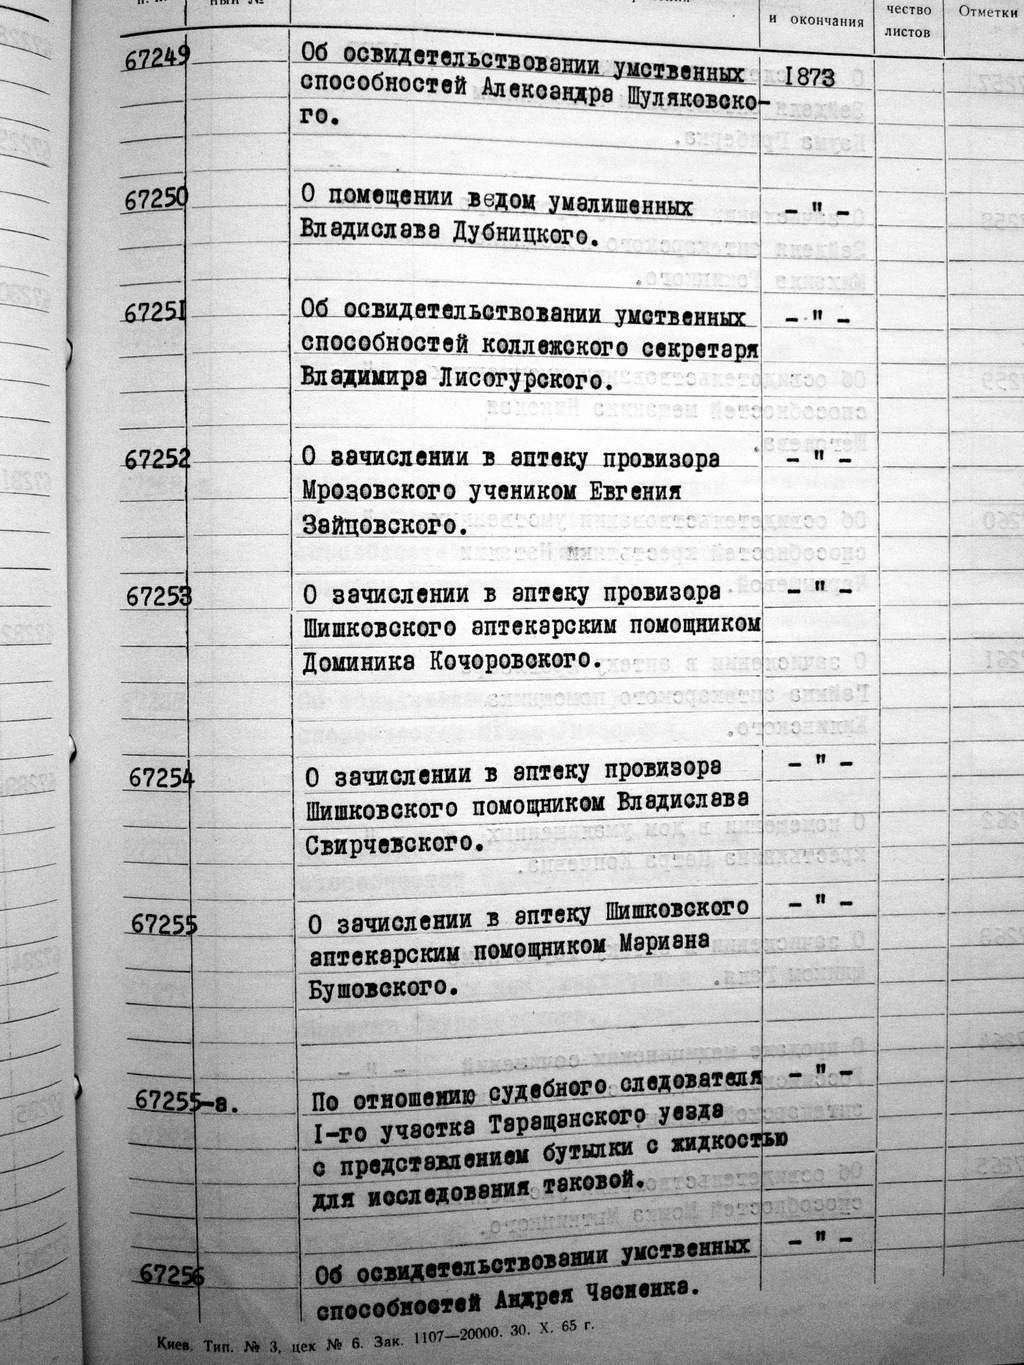 и окончания
чество
листов
Отметки
67249
Об освидетельствовании умственных
способностей Александра Шуляковско-
го.
1873
67250
О помещении ведом умалишенных
Владислава Дубницкого.
- " -
67251
Об освидетельствовании умственных
способностей коллежского секретаря
Владимира Лисогурского.
- " -
67252
О зачислении в аптеку провизора
Мрозовского учеником Евгения
Зайцовского.
- " -
67253
О зачислении в аптеку провизора
Шишковского аптекарским помощником
Доминика Кочоровского.
- " -
67254
О зачислении в аптеку провизора
Шишковского помощником Владислава
Свирчевского.
- " -
67255
О зачислении в аптеку Шишковского
аптекарским помощником Мариана
Бушовского.
- " -
67255-а.
По отношению судебного следователя
I-го участка Таращанского уезда
с представлением бутылки с жидкостью
для исследования таковой.
- " -
67256
Об освидетельствовании умственных
способностей Андрея Часненка.
- " -
Киев. Тип. № 3, цех № 6. Зак. 1107—20000. 30. X. 65 г.